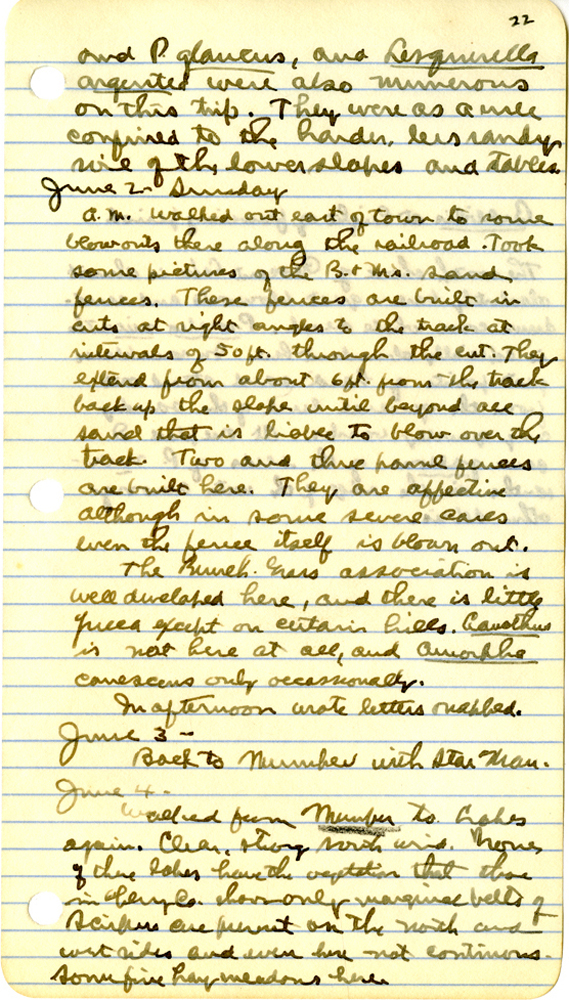 22
and P. glaucus, and Lesquerella
argentea were also numerous
on this trip. They were as a rule
confined to the harder, less sandy
soil of the lower slopes and tables.
June 2 - Sunday
A.M. walked out east of town to some
blowouts there along the railroad. Took
some pictures of the B. & M's. sand
fences. These fences are built in
cuts at right angles to the track at
intervals of 50 ft. through the cut. They
extend from about 6 ft. from the track
back up the slope until beyond all
sand that is liable to blow over the
track. Two and three panel fences
are built here. They are affective
although in some severe cases
even the fence itself is blown out.
The Bunch-Grass association is
well developed here, and there is little
Yucca except on certain hills. Ceanothus
is not here at all, and Amorpha
canescens only occassionally.
In afternoon wrote letters & napped.
June 3 -
Back to Mumper with Star Man.
June 4 -
Walked from Mumper to Lakes
again. Clear, strong north wind. None
of these lakes have the vegetation that those
in Cherry Co. show only marginal belts of
Scirpus are present on the north and
west sides and even here not continuous.
Some fine hay meadows here.